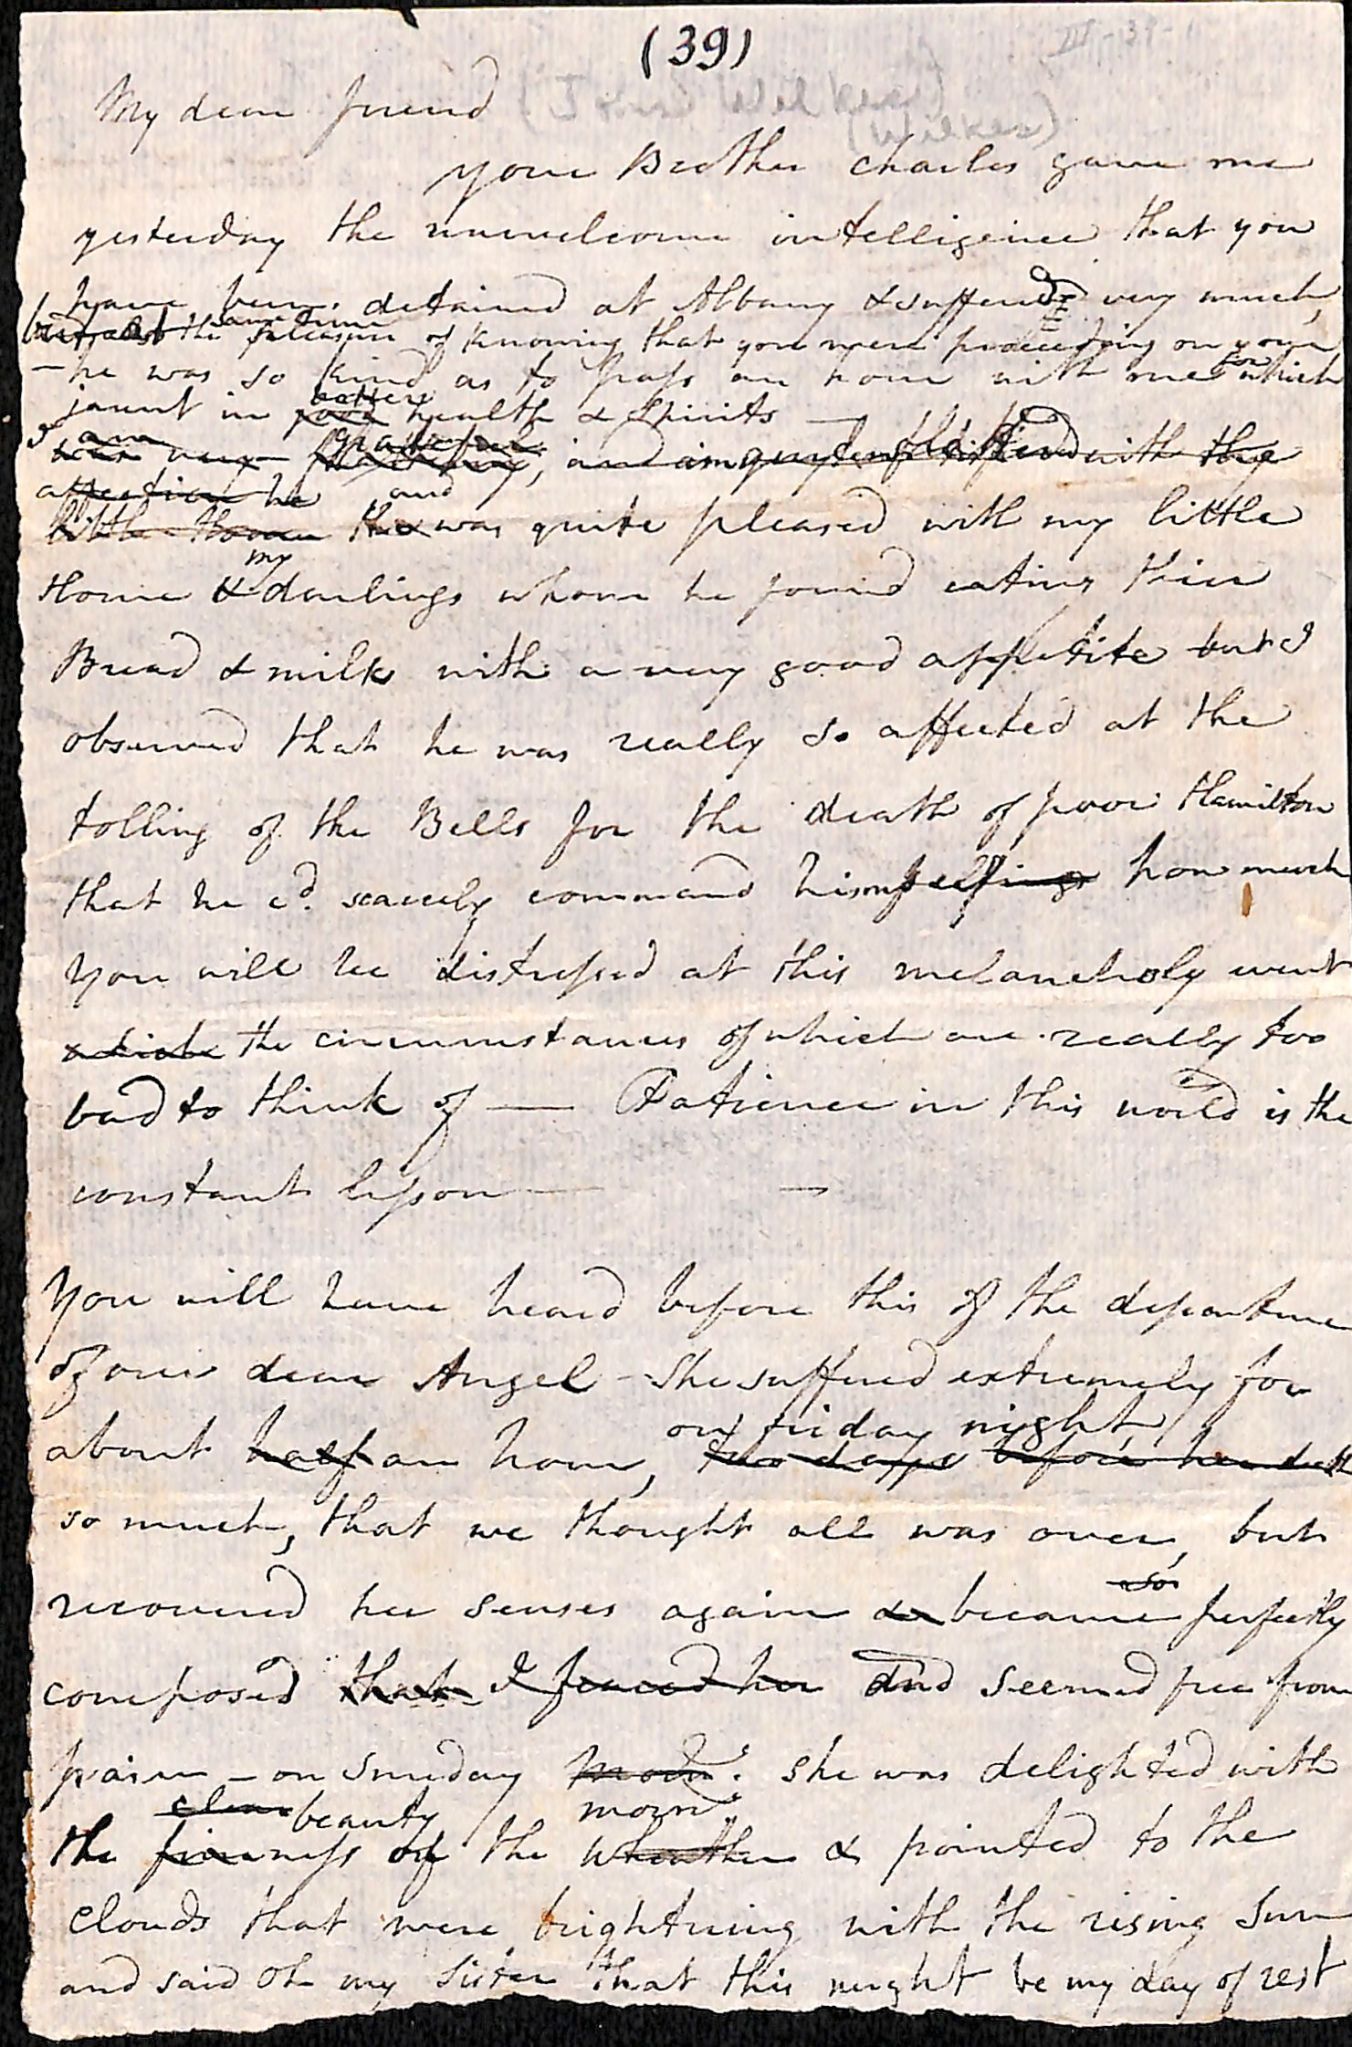 (39)
III-39-1
My dear friend
(Wilkes)
your Brother Charles gave me
yesterday the unwelcome intelligence that you
have been detained at Albany & suffered very much,
but at the same time
had the pleasure of knowing that you were proceeding on your
– he was so kind as to pass an hour with me for which
jaunt in good better health & spirits —
I am
was very grateful, and am quite with the
affection he and
little Home he was quite pleased with my little
my
Home & darlings whom he found eating their
Bread & milk with a very good appetite but I
observed that he was really so affected at the
tolling of the Bells for the death of poor Hamilton
that he cd. scarcely command himself how much
you will be distressed at this melancholy event
which the circumstances of which are really too
bad to think of — Patience in this world is the
constant lesson — —
You will have heard before this of the departure
of our dear Angel – She suffered extremely for
on friday night
about half an hour, two days before her death
so much, that we thought all was over, but
so
recovered her senses again & became perfectly
composed that I feared her and seemed free from
pain – on Sunday morn. she was delighted with
clear beauty morng
the fineness of the wheather & pointed to the
clouds that were brightning with the rising Sun
and said Oh my Sister that this might be my day of rest